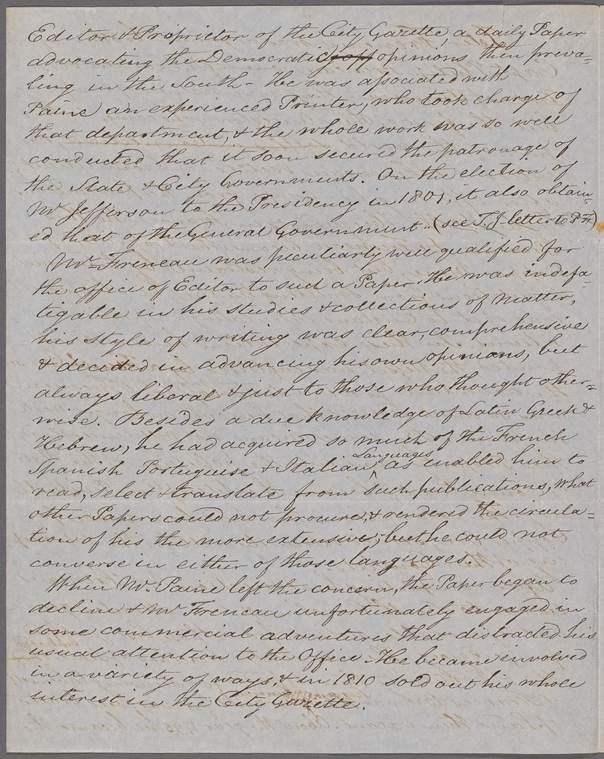 Editor & Proprietor of the City Gazette, a daily Paper
advocating the Democratic opinions then preva=
ling in the South - He was associated with
Paine an experienced Printer, who took charge of
that department, & the whole work was so well
conducted that it soon secured the patronage of
the State & City Governments. On the election of
Mr Jefferson to the Presidency in 1801, it also obtain=
ed that of the General Government .. (see T.J. letter to P.F.)
Mr Freneau was peculiarly well qualified for
the office of Editor to such a Paper. He was indefa=
tigable in his studies & collections of matter,
his style of writing was clear, comprehensive
& decided in advancing his own opinions, but
always liberal & just to those who thought other=
wise. Besides a due knowledge of Latin Greek &
Hebrew, he had acquired so much of the French
Spanish Portuguise & Italian Languages as enabled him to
read, select & translate from such publications, what
other Papers could not procure, & rendered the circula=
tion of his the more extensive; but he could not
converse in either of those languages.
When Mr. Paine left the concern, the Paper began to
decline & Mr Freneau unfortunately engaged in
some commercial adventures that distracted his
usual attention to the Office. He became involved
in a variety of ways, & in 1810 sold out his whole
interest in the City Gazette.